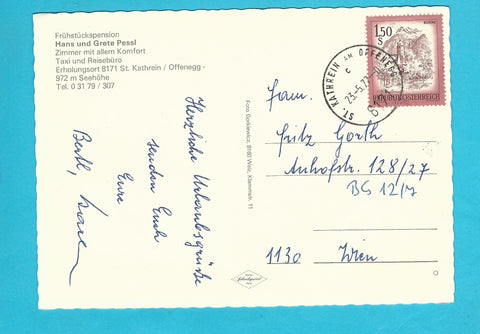 Frühstückspension
Hans und Grete Pessl
Zimmer mit allem Komfort
Taxi und Reisebüro
Erholungsort 8171 St. Kathrein / Offenegg -
972 m Seehöhe
Tel. 0 31 79 / 307
Herzliche Urlaubsgrüße
senden Euch
Eure
Bertl,
Foto Gorkiewicz, 8160 Weiz, Klammstr. 11
1.50
S
REPUBLIK ÖSTERREICH
ST. KATHREIN AM OFFENEGG
23.-5.77
Fam.
Fritz Gorth
Anhofstr. 128/27
BG 12/7
1130 Wien